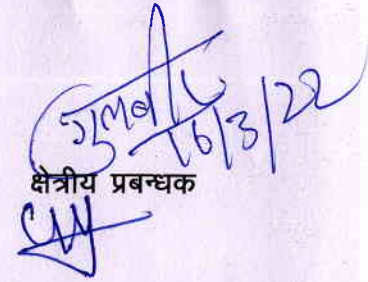 गुलबीर
16/3/22
क्षेत्रीय प्रबन्धक